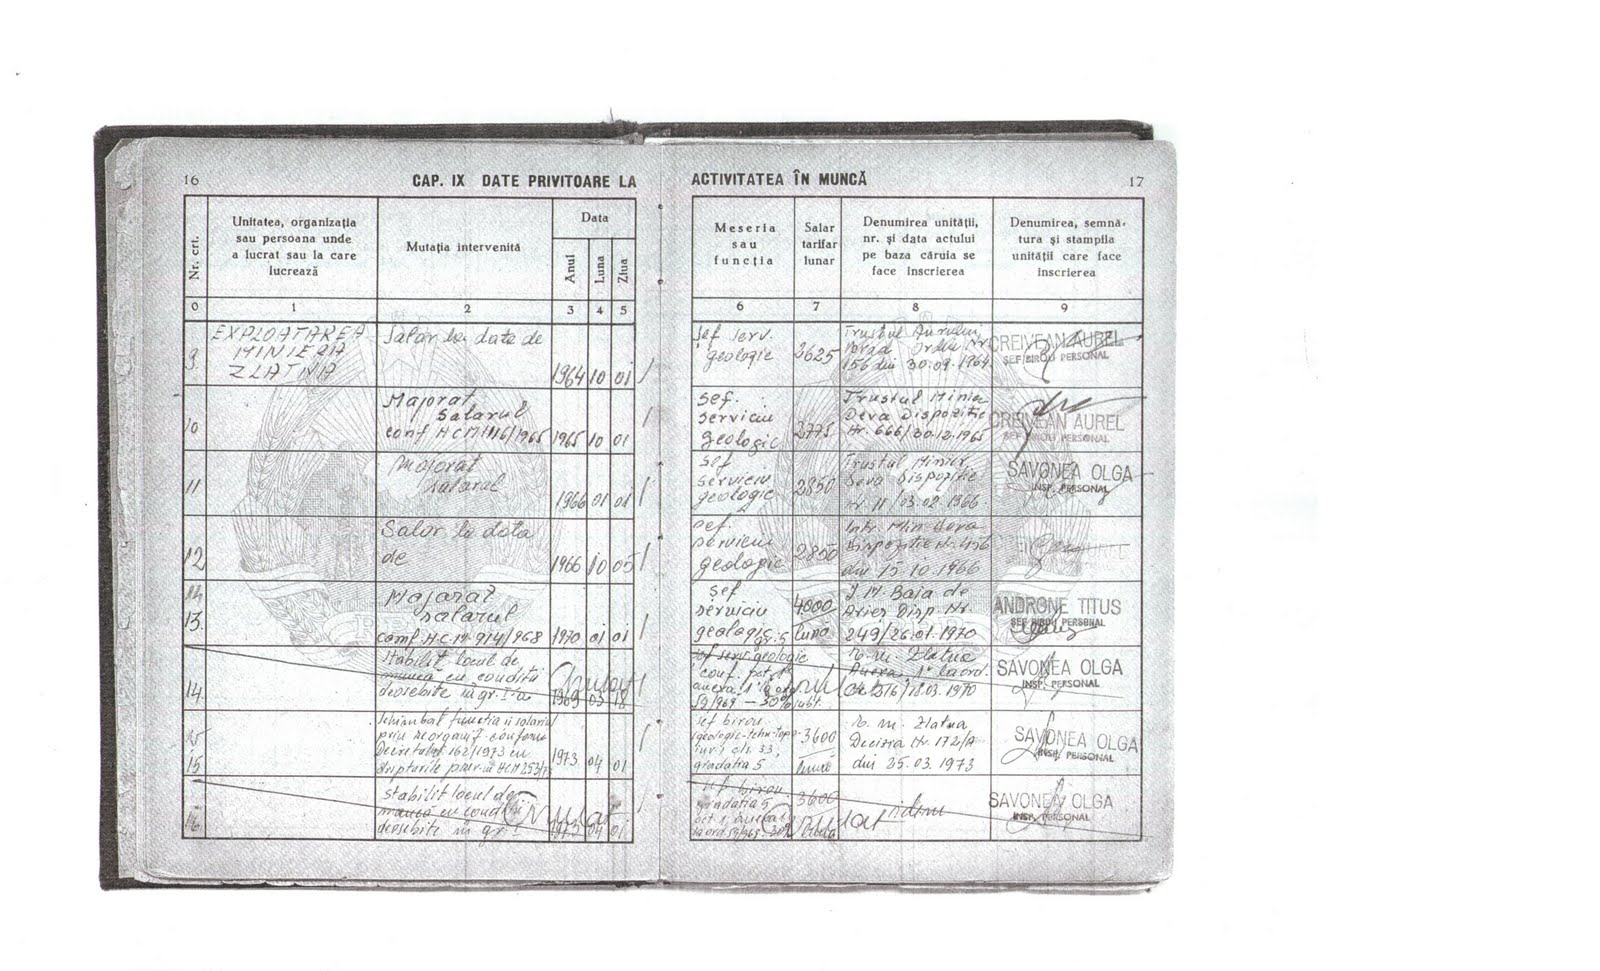 16
CAP. IX DATE PRIVITOARE LA
Nr. crt.
Unitatea, organizația
sau persoana unde
a lucrat sau la care
lucrează
Mutația intervenită
Data
Anul
Luna
Ziua
0
1
2
3
4
5
9.
EXPLOATAREA
MINIERA
ZLATNA
Salar la data de
1964 10 01
10
Majorat
salarul
conf. HCM 1116/1965
1965 10 01
11
Majorat
salarul
1966 01 01
12
Salar la data
de
1966 10 05
13.
Majorat
salarul
conf. H.C.M. 914/968
1970 01 01
14.
Stabilit locul de
muncă cu condiții
deosebite în gr. I-a
1969 03 18
Anulat
15
Schimbat funcția și salariul
prin reorganiz. conform
Decretului 162/1973 cu
drepturile prev. în HCM 253/
1973 04 01
16.
Stabilit locul de
muncă cu condiții
deosebite în gr. I
1973 04 01
Anulat
ACTIVITATEA ÎN MUNCĂ
17
Meseria
sau
funcția
Salar
tarifar
lunar
Denumirea unității,
nr. și data actului
pe baza căruia se
face înscrierea
Denumirea, semnă-
tura și stampila
unității care face
înscrierea
6
7
8
9
șef serv.
geologic
2625
Trustul Aurului
Brad Ordin Nr.
156 din 30.09.1964
CREIVEAN AUREL
ȘEF BIROU PERSONAL
șef.
serviciu
geologic
2775
Trustul Minier
Deva Dispoziție
Nr. 666/30.12.1965
CREIVEAN AUREL
ȘEF BIROU PERSONAL
șef
serviciu
geologic
2850
Trustul Minier
Deva Dispoziție
Nr. 11/03.02.1966
SAVONEA OLGA
INSP. PERSONAL
șef.
serviciu
geologic
2850
Intr. Min. Deva
Dispoziție Nr. 456
din 15.10.1966
AUREL
șef
serviciu
geologic
4000
luna
I.M. Baia de
Arieș Disp. Nr.
249/26.01.1970
ANDRONE TITUS
ȘEF BIROU PERSONAL
șef serv. geologic
conf. pct. 1
anexa 1 la ord.
59/1969 – 50%
E.M. Zlatna
Anexa 1 la ord.
316/18.03.1970
SAVONEA OLGA
INSP. PERSONAL
șef birou
geologic-tehn-topo
cls. 33,
gradația 5
3600
E.M. Zlatna
Decizia Nr. 172/A
din 25.03.1973
SAVONEA OLGA
INSP. PERSONAL
șef birou
gradația 5
3600
idem
SAVONEA OLGA
INSP. PERSONAL